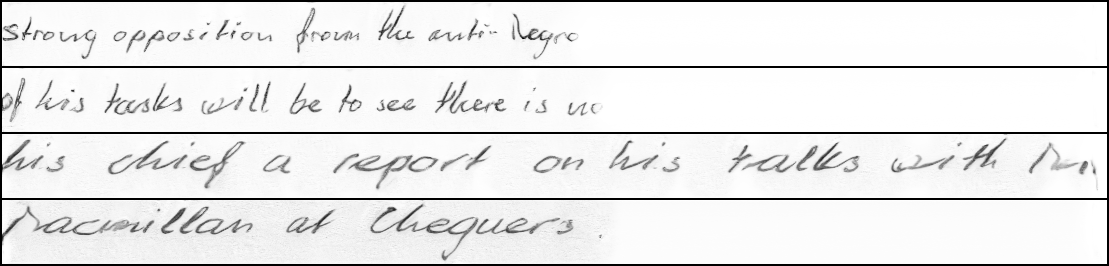 strong opposition from the anti-Negro
of his tasks will be to see there is no
his chief a report on his talks with Mr
Macmillan at Chequers.